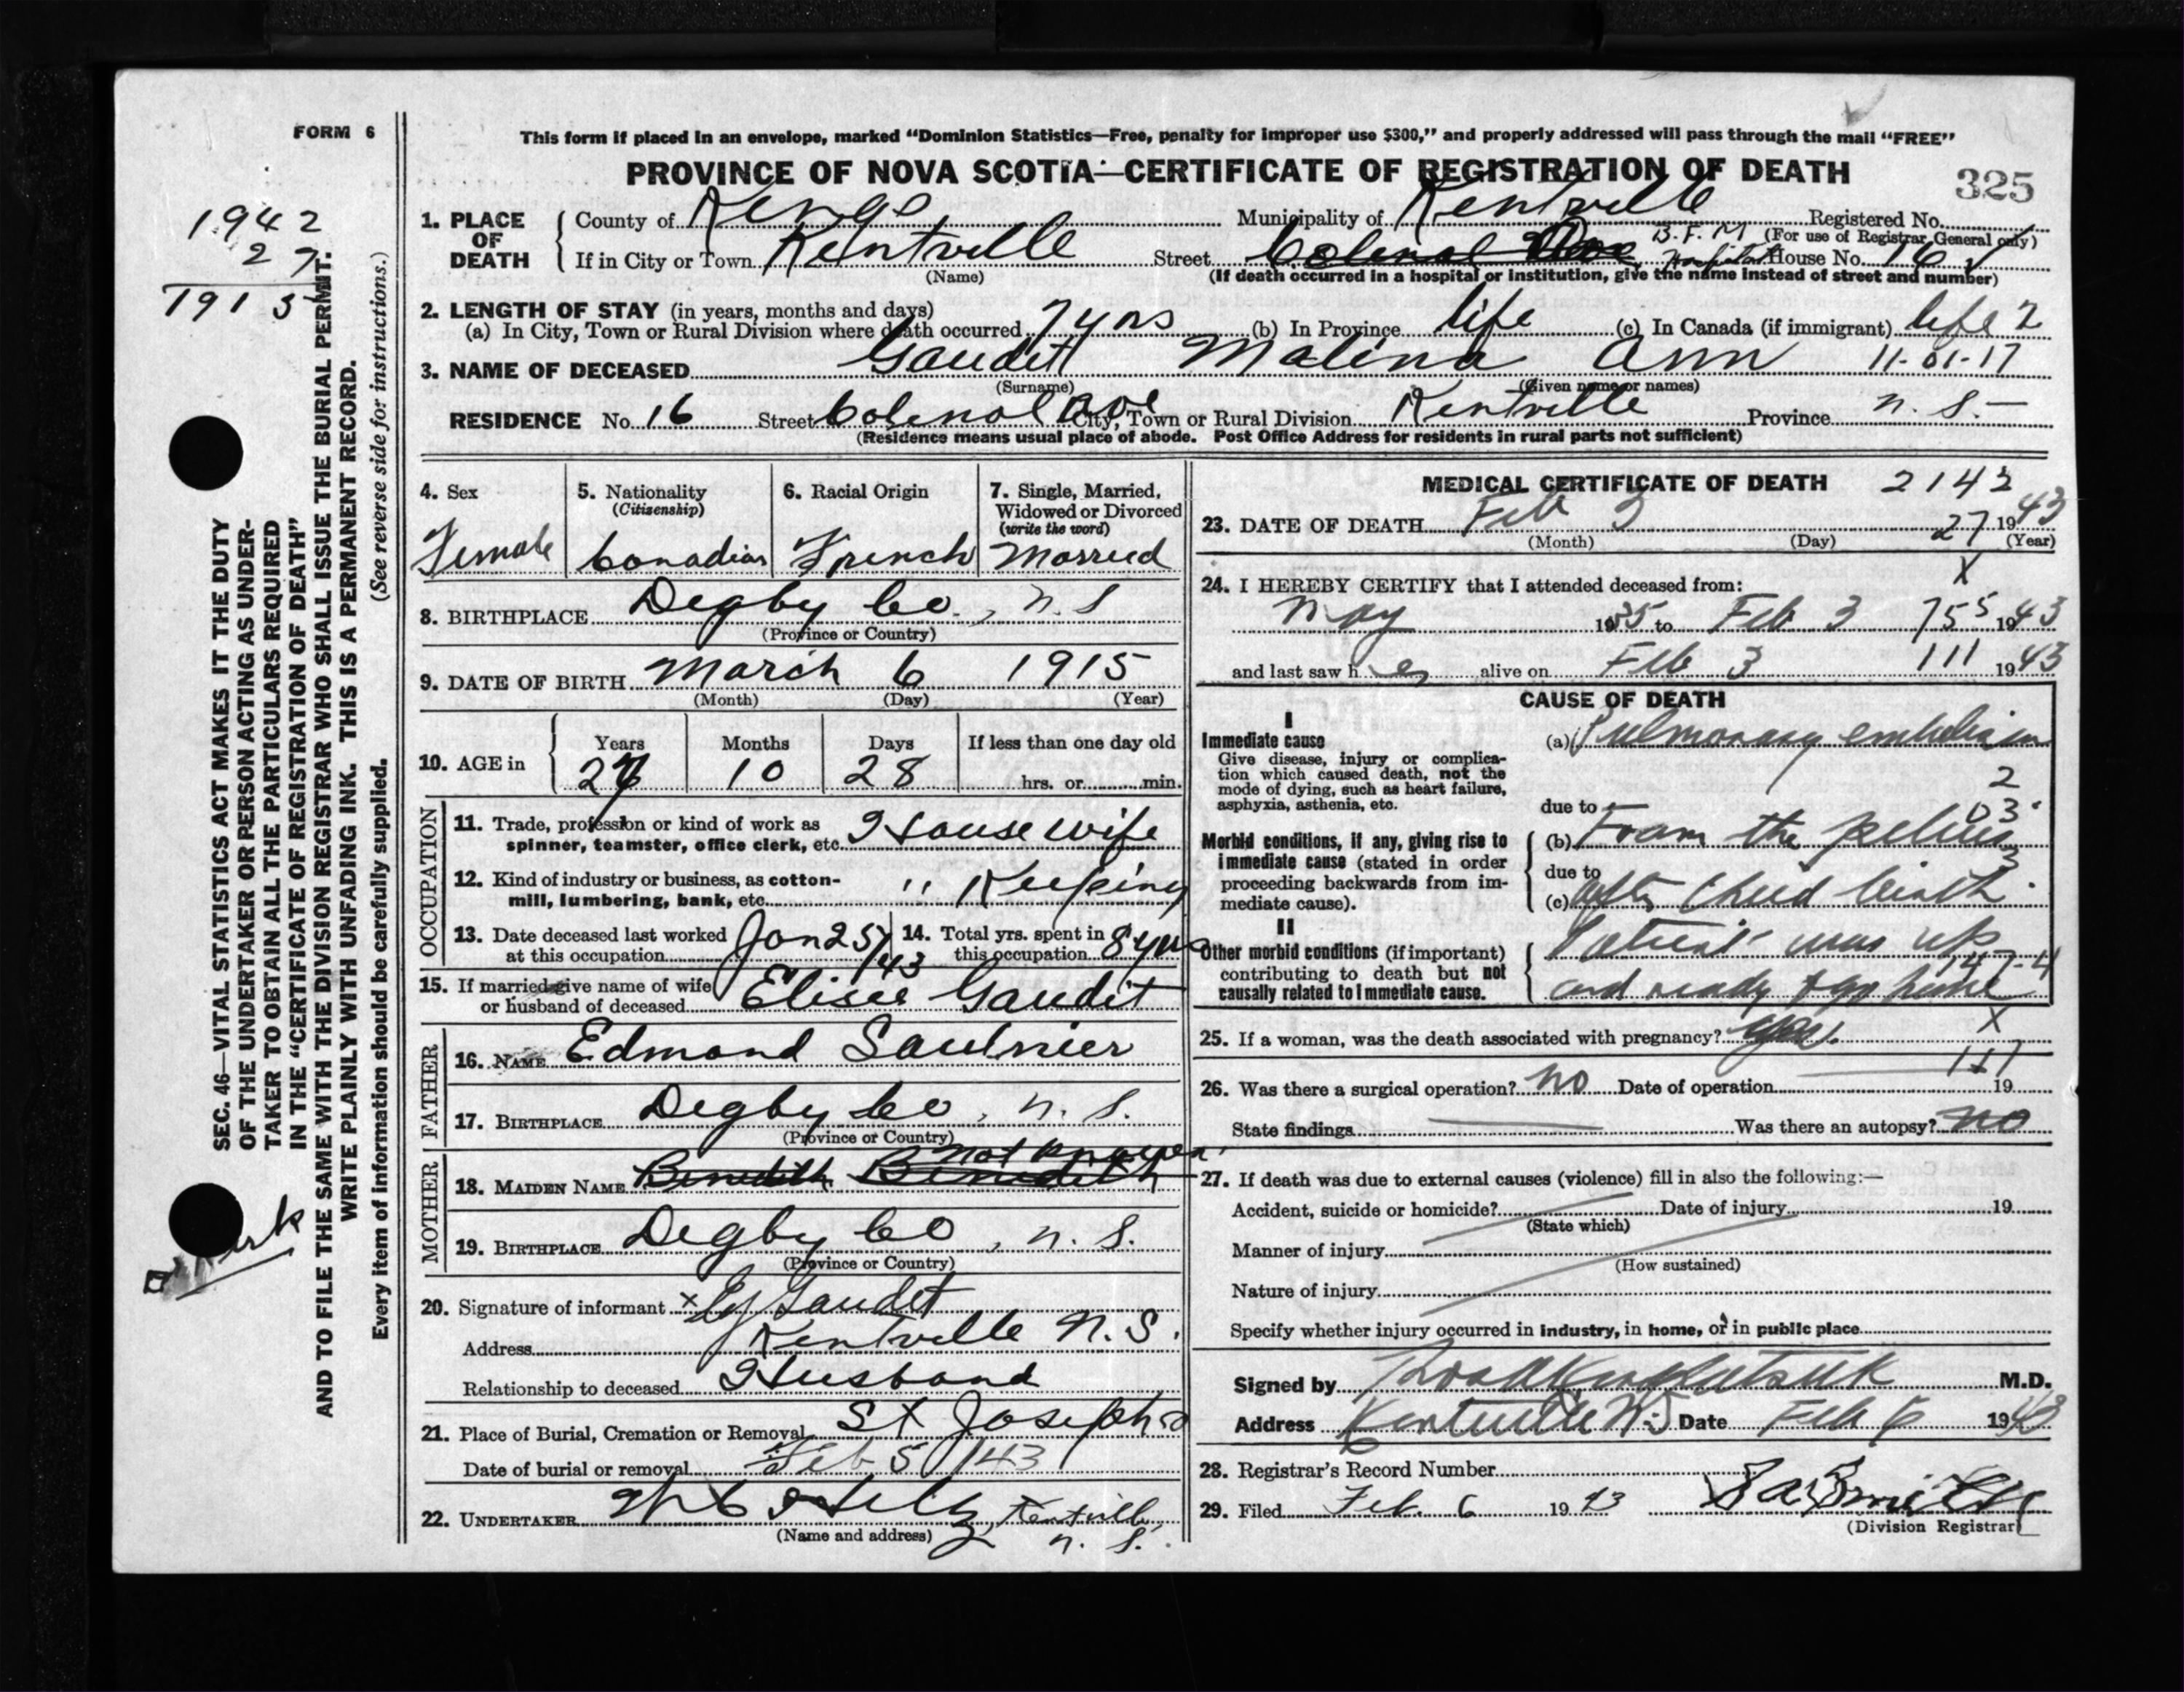 FORM 6
This form if placed in an envelope, marked “Dominion Statistics—Free, penalty for improper use $300,” and properly addressed will pass through the mail “FREE”
PROVINCE OF NOVA SCOTIA—CERTIFICATE OF REGISTRATION OF DEATH
325
1942
27
1915
1. PLACE OF DEATH County of Kings Municipality of Kentville Registered No.
(For use of Registrar General only)
If in City or Town Kentville Street B.F.M. Hospital House No. 16
(Name) (If death occurred in a hospital or institution, give the name instead of street and number)
2. LENGTH OF STAY (in years, months and days)
(a) In City, Town or Rural Division where death occurred 7 yrs (b) In Province life (c) In Canada (if immigrant) life 2
3. NAME OF DECEASED Gaudit Malina Ann 11-01-17
(Surname) (Given name or names)
RESIDENCE No. 16 Street Colenol Ave City, Town or Rural Division Kentville Province N. S.—
(Residence means usual place of abode. Post Office Address for residents in rural parts not sufficient)
4. Sex 5. Nationality (Citizenship) 6. Racial Origin 7. Single, Married, Widowed or Divorced (write the word)
Female Canadian French Married
8. BIRTHPLACE Digby Co., N. S
(Province or Country)
9. DATE OF BIRTH March 6 1915
(Month) (Day) (Year)
10. AGE in Years Months Days If less than one day old
27 10 28 hrs. or min.
OCCUPATION
11. Trade, profession or kind of work as spinner, teamster, office clerk, etc. House wife
12. Kind of industry or business, as cotton-mill, lumbering, bank, etc. " Keeping
13. Date deceased last worked at this occupation Jan 25/43 14. Total yrs. spent in this occupation 8 yrs
15. If married give name of wife or husband of deceased Elisee Gaudit
FATHER
16. NAME Edmond Saulnier
17. BIRTHPLACE Digby Co, N. S.
(Province or Country)
MOTHER
18. MAIDEN NAME Benedith Benedith not known
19. BIRTHPLACE Digby Co, N. S.
(Province or Country)
20. Signature of informant x Ey Gaudet
Address Kentville N. S.
Relationship to deceased Husband
21. Place of Burial, Cremation or Removal St Josephs
Date of burial or removal Feb 5/43
22. UNDERTAKER Kentville, N. S.
(Name and address)
MEDICAL CERTIFICATE OF DEATH 2142
23. DATE OF DEATH Feb 3 27 1943
(Month) (Day) (Year)
24. I HEREBY CERTIFY that I attended deceased from: X
May 1935 to Feb 3 755 1943
and last saw her alive on Feb 3 111 1943
CAUSE OF DEATH
I
Immediate cause
Give disease, injury or complication which caused death, not the mode of dying, such as heart failure, asphyxia, asthenia, etc.
(a) Pulmonary embolism
2
03
due to
Morbid conditions, if any, giving rise to immediate cause (stated in order proceeding backwards from immediate cause).
(b) From the pelvis
3
due to
(c) after child birth
II
Other morbid conditions (if important) contributing to death but not causally related to immediate cause.
Patient was up
147-4
and ready to go home
25. If a woman, was the death associated with pregnancy? yes. X
117
26. Was there a surgical operation? no Date of operation 19
State findings Was there an autopsy? no
27. If death was due to external causes (violence) fill in also the following:—
Accident, suicide or homicide? Date of injury 19
(State which)
Manner of injury
(How sustained)
Nature of injury
Specify whether injury occurred in industry, in home, or in public place
Signed by M.D.
Address Kentville N.S Date Feb 1943
28. Registrar’s Record Number
29. Filed Feb. 6 1943
(Division Registrar)
SEC. 46—VITAL STATISTICS ACT MAKES IT THE DUTY
OF THE UNDERTAKER OR PERSON ACTING AS UNDER-
TAKER TO OBTAIN ALL THE PARTICULARS REQUIRED
IN THE “CERTIFICATE OF REGISTRATION OF DEATH”
AND TO FILE THE SAME WITH THE DIVISION REGISTRAR WHO SHALL ISSUE THE BURIAL PERMIT.
WRITE PLAINLY WITH UNFADING INK. THIS IS A PERMANENT RECORD.
Every item of information should be carefully supplied. (See reverse side for instructions.)